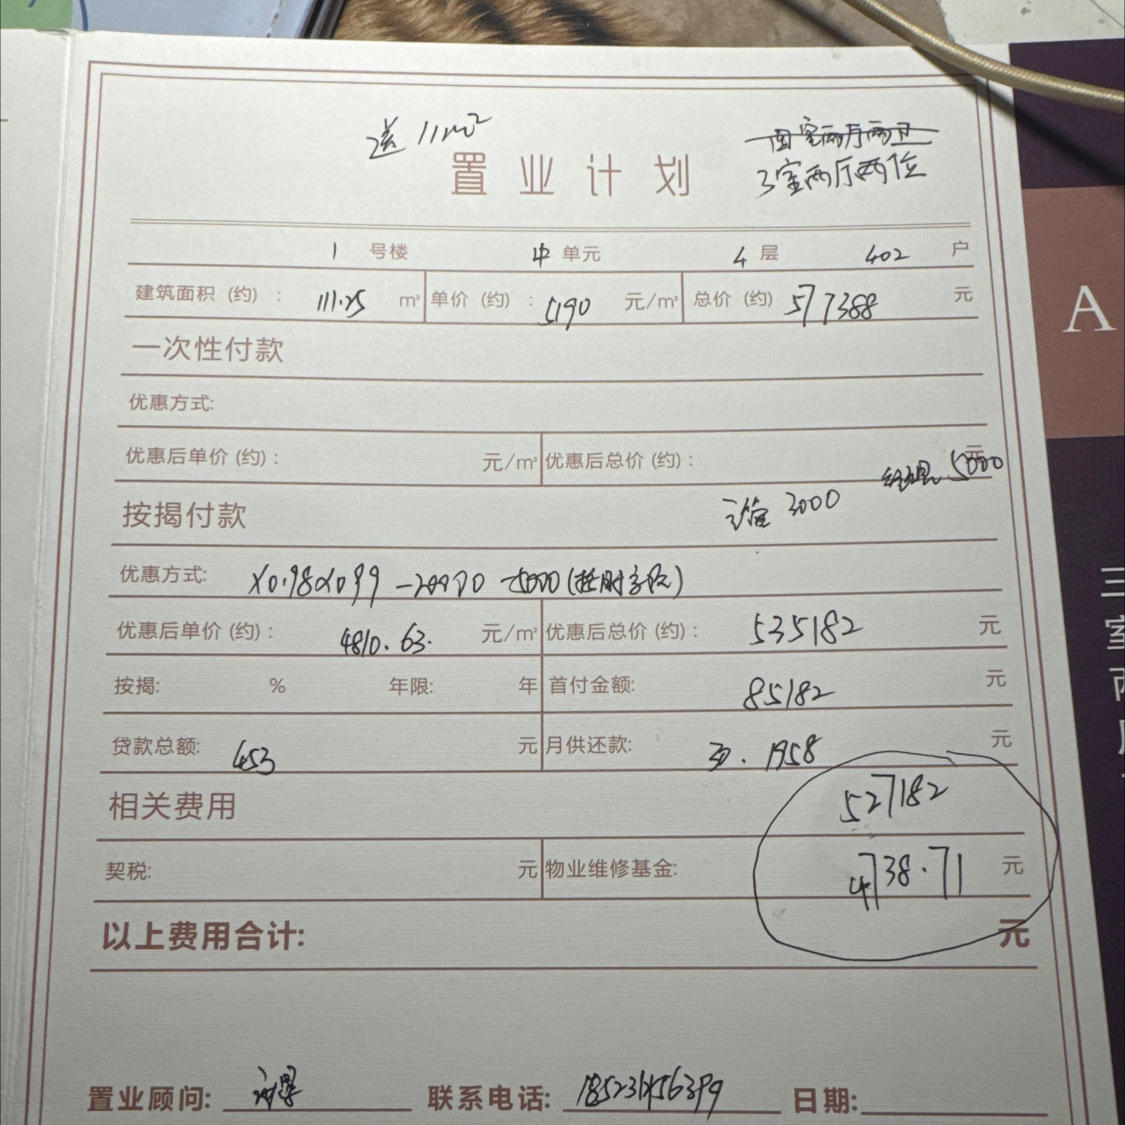 送 11m²
四室两厅两卫
3室两厅两位
置业计划
1 号楼 中 单元 4 层 402 户
建筑面积 (约) : 111.25 m² 单价 (约) : 5190 元/m² 总价 (约) 577388 元
A
一次性付款
优惠方式:
优惠后单价 (约) : 元/m² 优惠后总价 (约) : 元
经理 5000
按揭付款 3000
优惠方式: X0.98X0.99 -20000 -5000
优惠后单价 (约) : 4810.63. 元/m² 优惠后总价 (约) : 535182 元
按揭: % 年限: 年 首付金额: 85182 元
贷款总额: 453 元 月供还款: 30. 1958 元
相关费用 527182
契税: 元 物业维修基金: 4738.71 元
以上费用合计: 元
置业顾问: 联系电话: 日期:
三室两